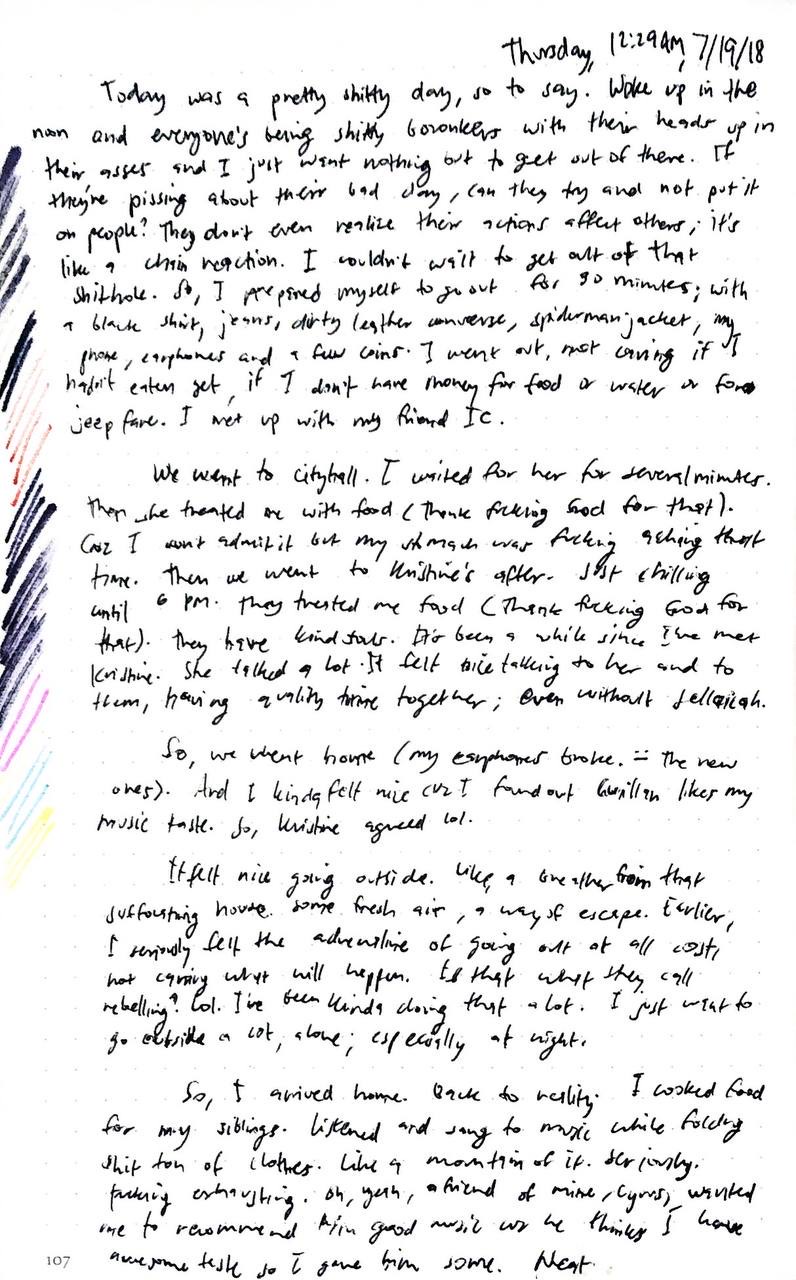 Thursday, 12:29AM, 7/19/18
Today was a pretty shitty day, so to say. Woke up in the
noon and everyone's being shitty boronkers with their heads up in
their asses and I just want nothing but to get out of there. If
they're pissing about their bad day, can they try and not put it
on people? They don't even realize their actions affect others; it's
like a chain reaction. I couldn't wait to get out of that
shithole. So, I prepared myself to go out for 30 minutes; with
a black shirt, jeans, dirty leather converse, spiderman jacket, my
phone, earphones and a few coins. I went out, not caring if I
hadn't eaten yet, if I don't have money for food or water or for
jeep fare. I met up with my friend IC.
We went to cityhall. I waited for her for several minutes.
Then she treated me with food (Thank fcking God for that).
Cuz I won't admit it but my stomach was fucking aching that
time. Then we went to Kristine's after. Just chilling
until 6 PM. They treated me food (Thank fcking God for
that). They have kind souls. It's been a while since I've met
Kristine. She talked a lot. It felt nice talking to her and to
them, having quality time together; even without Jellaicah.
So, we went home (my earphones broke. :- The new
ones). And I kinda felt nice cuz I found out likes my
music taste. So, Kristine agreed lol.
It felt nice going outside. Like, a breather from that
suffocating house. some fresh air, a way of escape. Earlier,
I seriously felt the adrenaline of going out at all costs,
not caring what will happen. Is that what they call
rebelling? Lol. I've been kinda doing that a lot. I just want to
go outside a lot, alone; especially at night.
So, I arrived home. Back to reality. I cooked food
for my siblings. Listened and sang to music while folding
shit ton of clothes. Like a mountain of it. Seriously.
fucking exhausting. Oh, yeah, a friend of mine, Cyrus, wanted
me to recommend him good music coz he thinks I have
awesome taste so I gave him some. Neat.
107